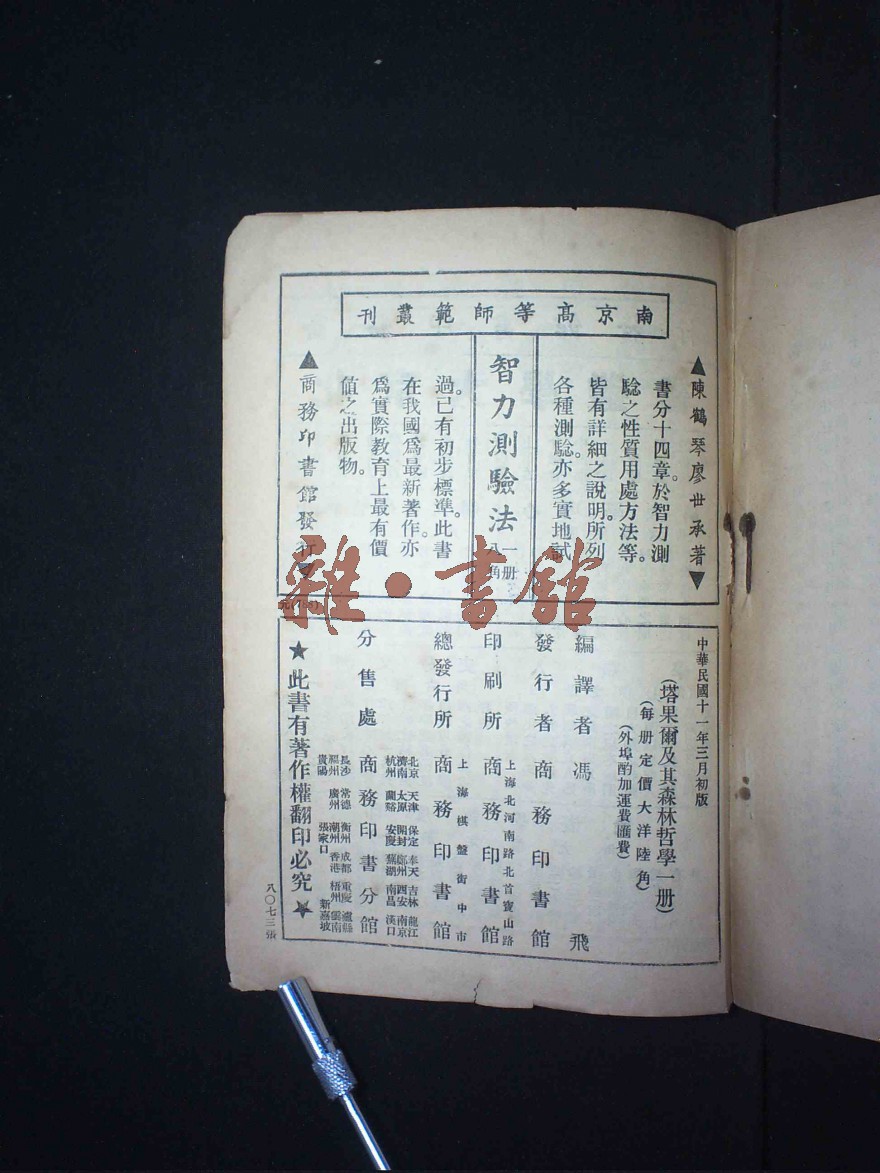 南京高等師範叢刊
▲陳鶴琴廖世承著▼
書分十四章。於智力測
驗之性質用處方法等。
皆有詳細之說明。所列
各種測驗。亦多實地試
智力測驗法
一册
八角
過。已有初步標準。此書
在我國爲最新著作。亦
爲實際教育上最有價
值之出版物。
▲商務印書館發行
元(768)
中華民國十一年三月初版
(塔果爾及其森林哲學一册)
(每册定價大洋陸角)
(外埠酌加運費匯費)
編譯者 馮飛
發行者 商務印書館
上海北河南路北首寶山路
印刷所 商務印書館
上海棋盤街中市
總發行所 商務印書館
北京 天津 保定 奉天 吉林 龍江
濟南 太原 開封 鄭州 西安 南京
杭州 蘭谿 安慶 蕪湖 南昌 漢口
分售處 商務印書分館
長沙 常德 衡州 成都 重慶 瀘縣
福州 廣州 潮州 香港 梧州 雲南
貴陽 張家口 新嘉坡
★此書有著作權翻印必究★
八〇七三張
雜·書館